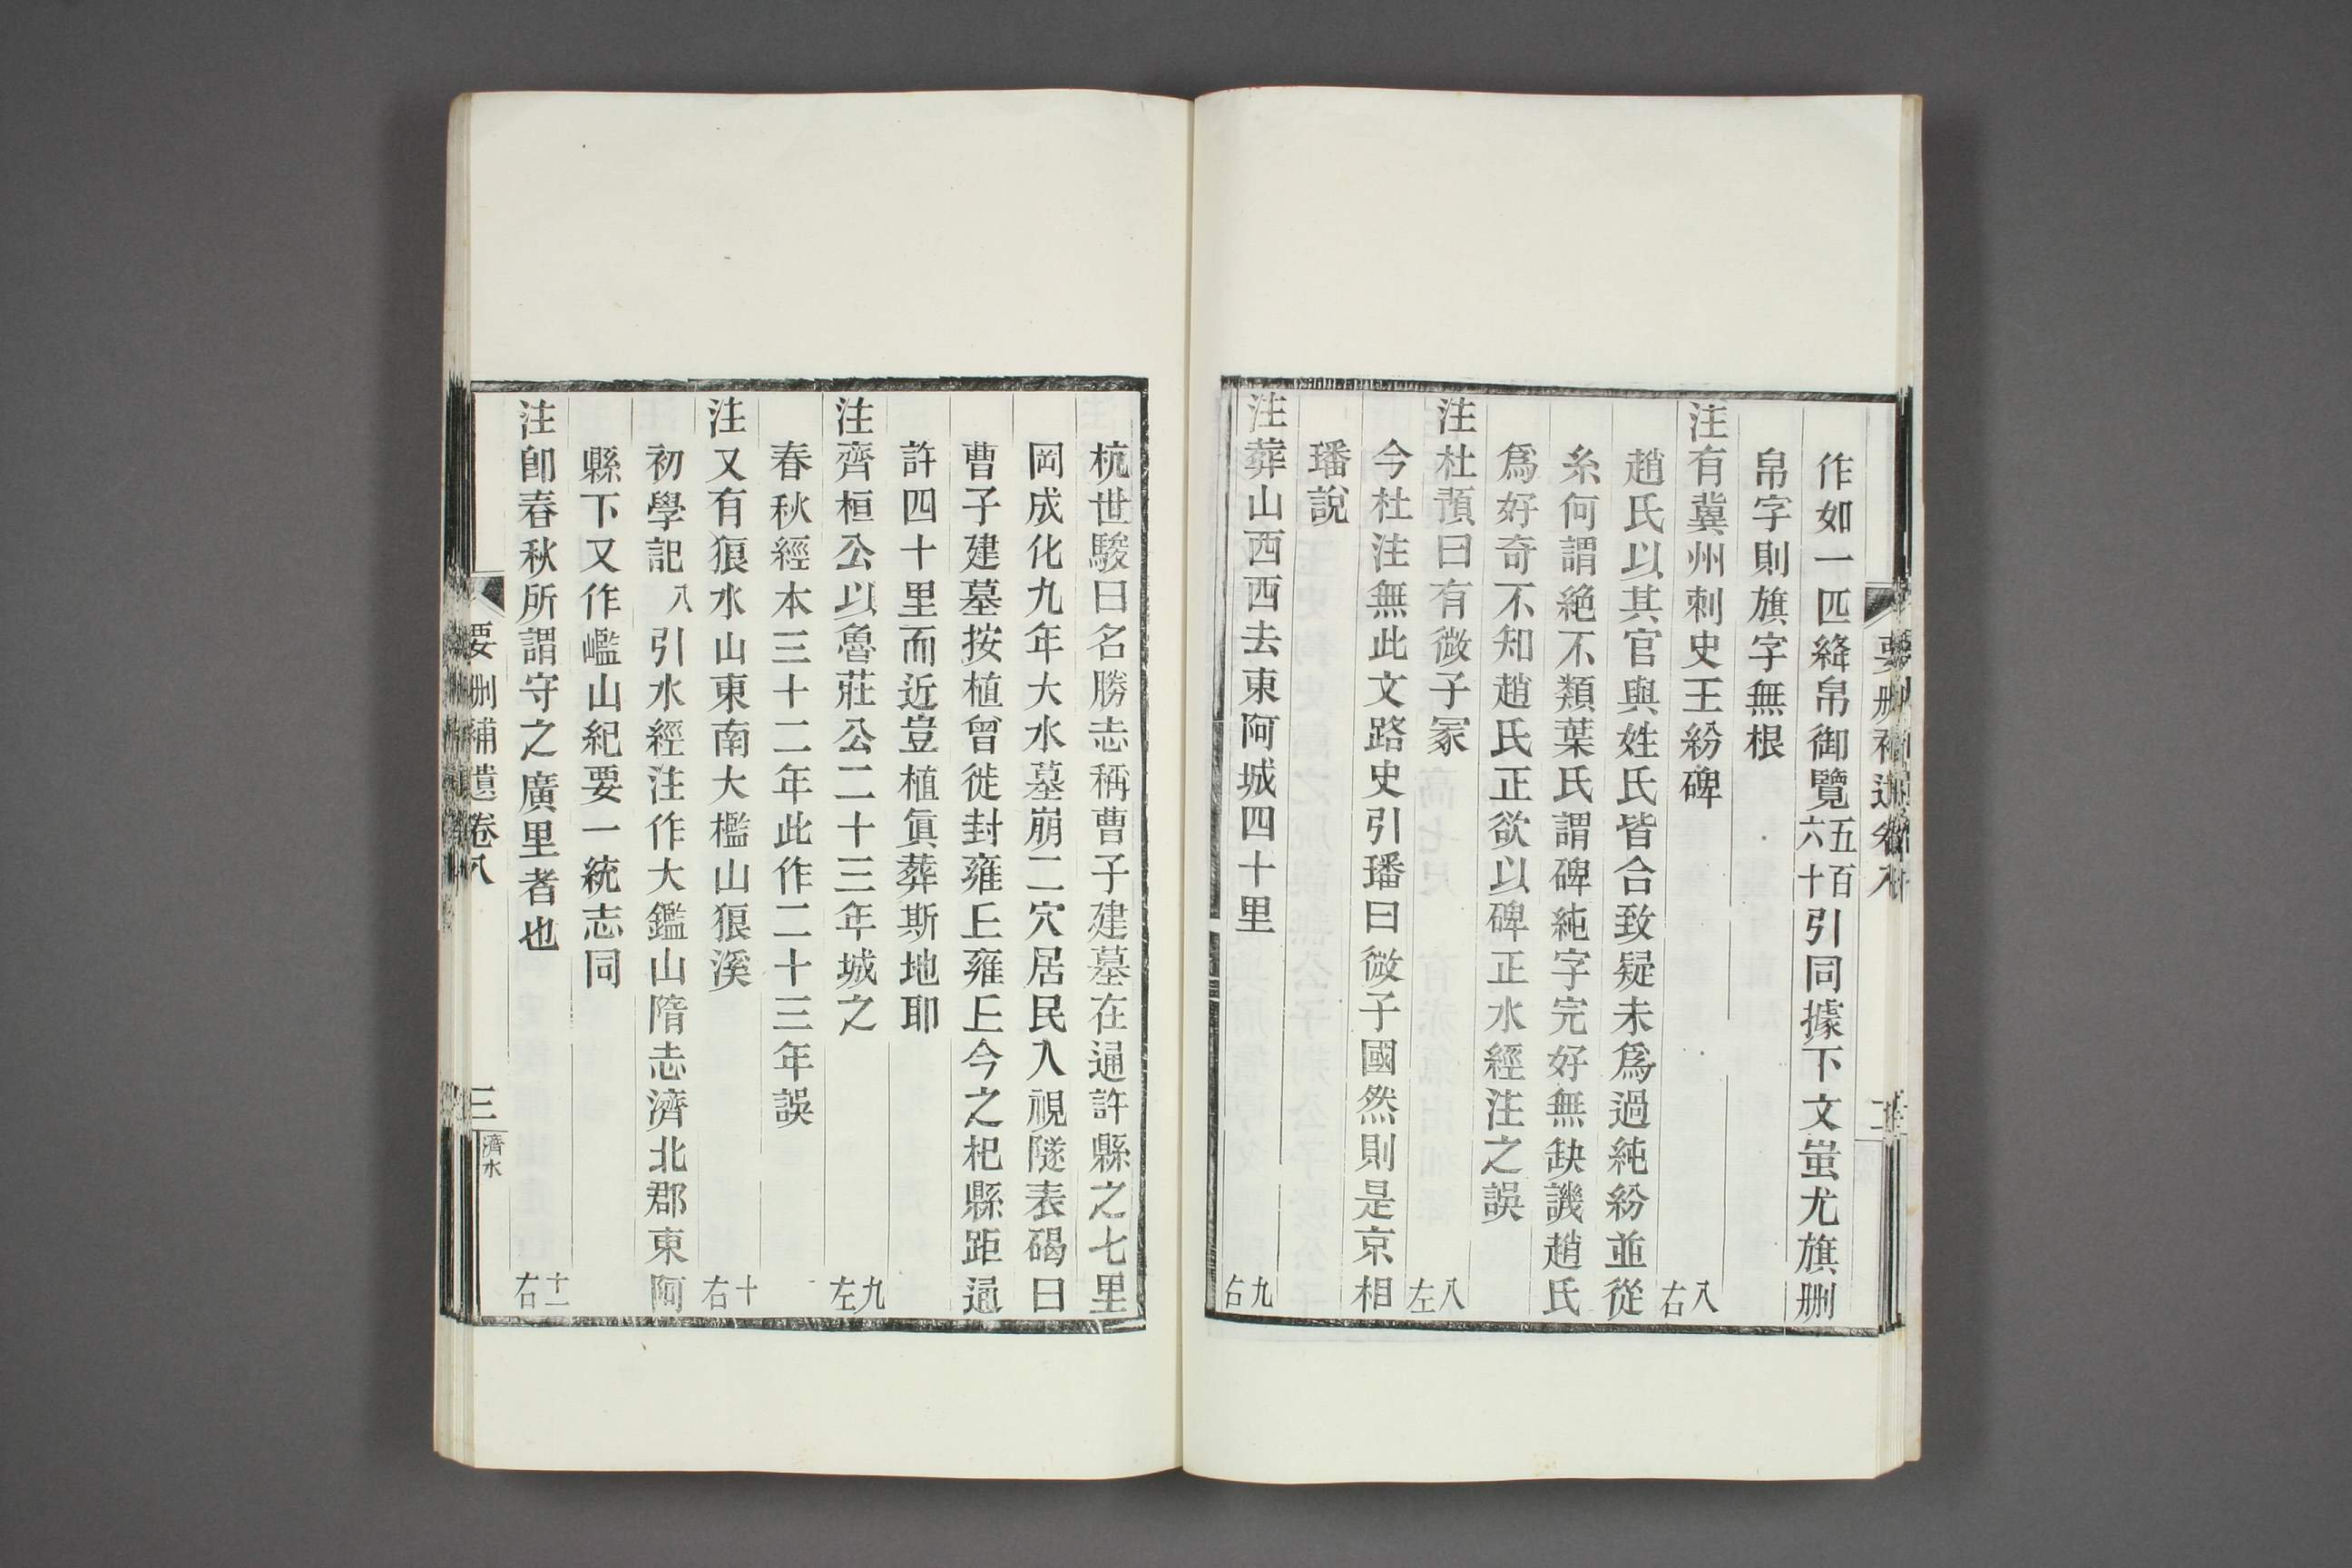 作如一匹絳帛御覽五百六十引同據下文蚩尤旗删
帛字則旗字無根
注有冀州刺史王紛碑 八右
趙氏以其官與姓氏皆合致疑未爲過純紛並從
糸何謂絶不類葉氏謂碑純字完好無缺譏趙氏
爲好奇不知趙氏正欲以碑正水經注之誤
注杜預曰有微子冢 八左
今杜注無此文路史引璠曰微子國然則是京相
璠說
注葬山西西去東阿城四十里 九右
杭世駿曰名勝志稱曹子建墓在通許縣之七里
岡成化九年大水墓崩二穴居民入視隧表碣曰
曹子建墓按植曾徙封雍丘雍丘今之杞縣距通
許四十里而近豈植眞葬斯地耶
注齊桓公以魯莊公二十三年城之 九左
春秋經本三十二年此作二十三年誤
注又有狼水山東南大檻山狼溪 十右
初學記八引水經注作大鑑山隋志濟北郡東阿
縣下又作㠜山紀要一統志同
注卽春秋所謂守之廣里者也 十一右
要删補遺卷八 三 濟水